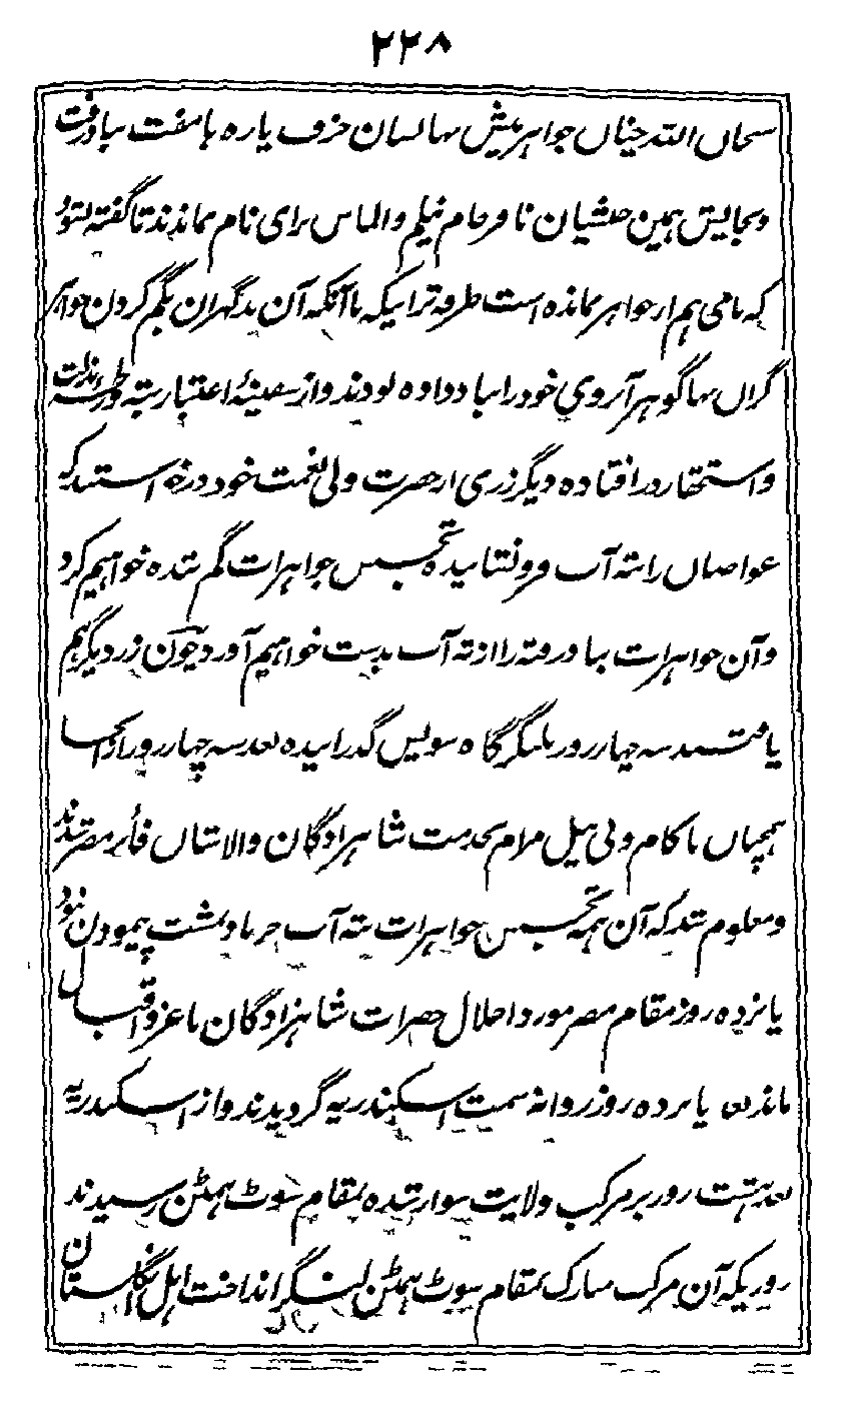 ۲۲۸
سبحان الله چنان جواهر بیش بها بسان خزف پاره ها مفت بباد رفت
و بجایش همین حبشیان نافرجام نیلم و الماس برای نام بماندند تا گفته شود
که نامی هم از جواهر بمانده است طرفه تر اینکه با آنکه آن بدگهران بگم کردن جواهر
گران بها گوهر آبروی خود را بباد داده بودند و از سفینهٔ اعتبار بته ورطه
و استحقار در افتاده دیگر زری از حضرت ولی نعمت خود درخواستند که
غواصان را بته آب فرونشانیده تجسس جواهرات گم شده خواهیم کرد
و آن جواهرات بباد رفته را از ته آب بدست خواهیم آورد چون زر دیگر هم
یافتند سه چهار روز بلنگرگاه سویس گذرانیده بعد سه چهار روز از آنجا
همچنان ناکام و بی نیل مرام بخدمت شاهزادگان والاشان فائز مصر شدند
و معلوم شد که آن همه تجسس جواهرات بته آب جز باد بمشت پیمودن نبود
پانزده روز مقام مصر مورد اجلال حضرات شاهزادگان با عز و اقبال
مانده بعد پانزده روز روانه سمت اسکندریه گردیدند و از اسکندریه
بعد هشت روز بر مرکب ولایت سوار شده بمقام سوٹ ہمٹن رسیدند
روزیکه آن مرکب مبارک بمقام سوٹ ہمٹن لنگر انداخت اهل انگلستان